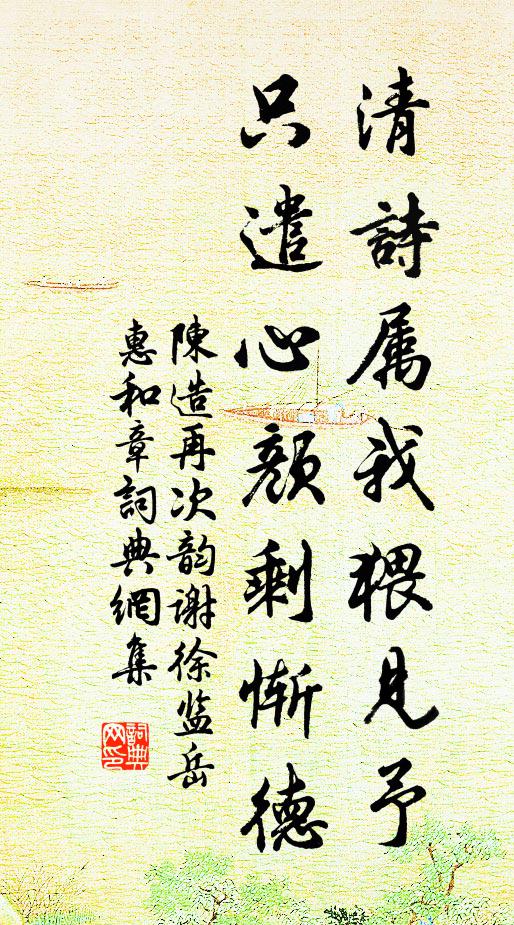 清詩属我猥見予
只遣心顔剩慚德
陳造再次韵谢徐监岳
惠和章詞典網集
詞典网印